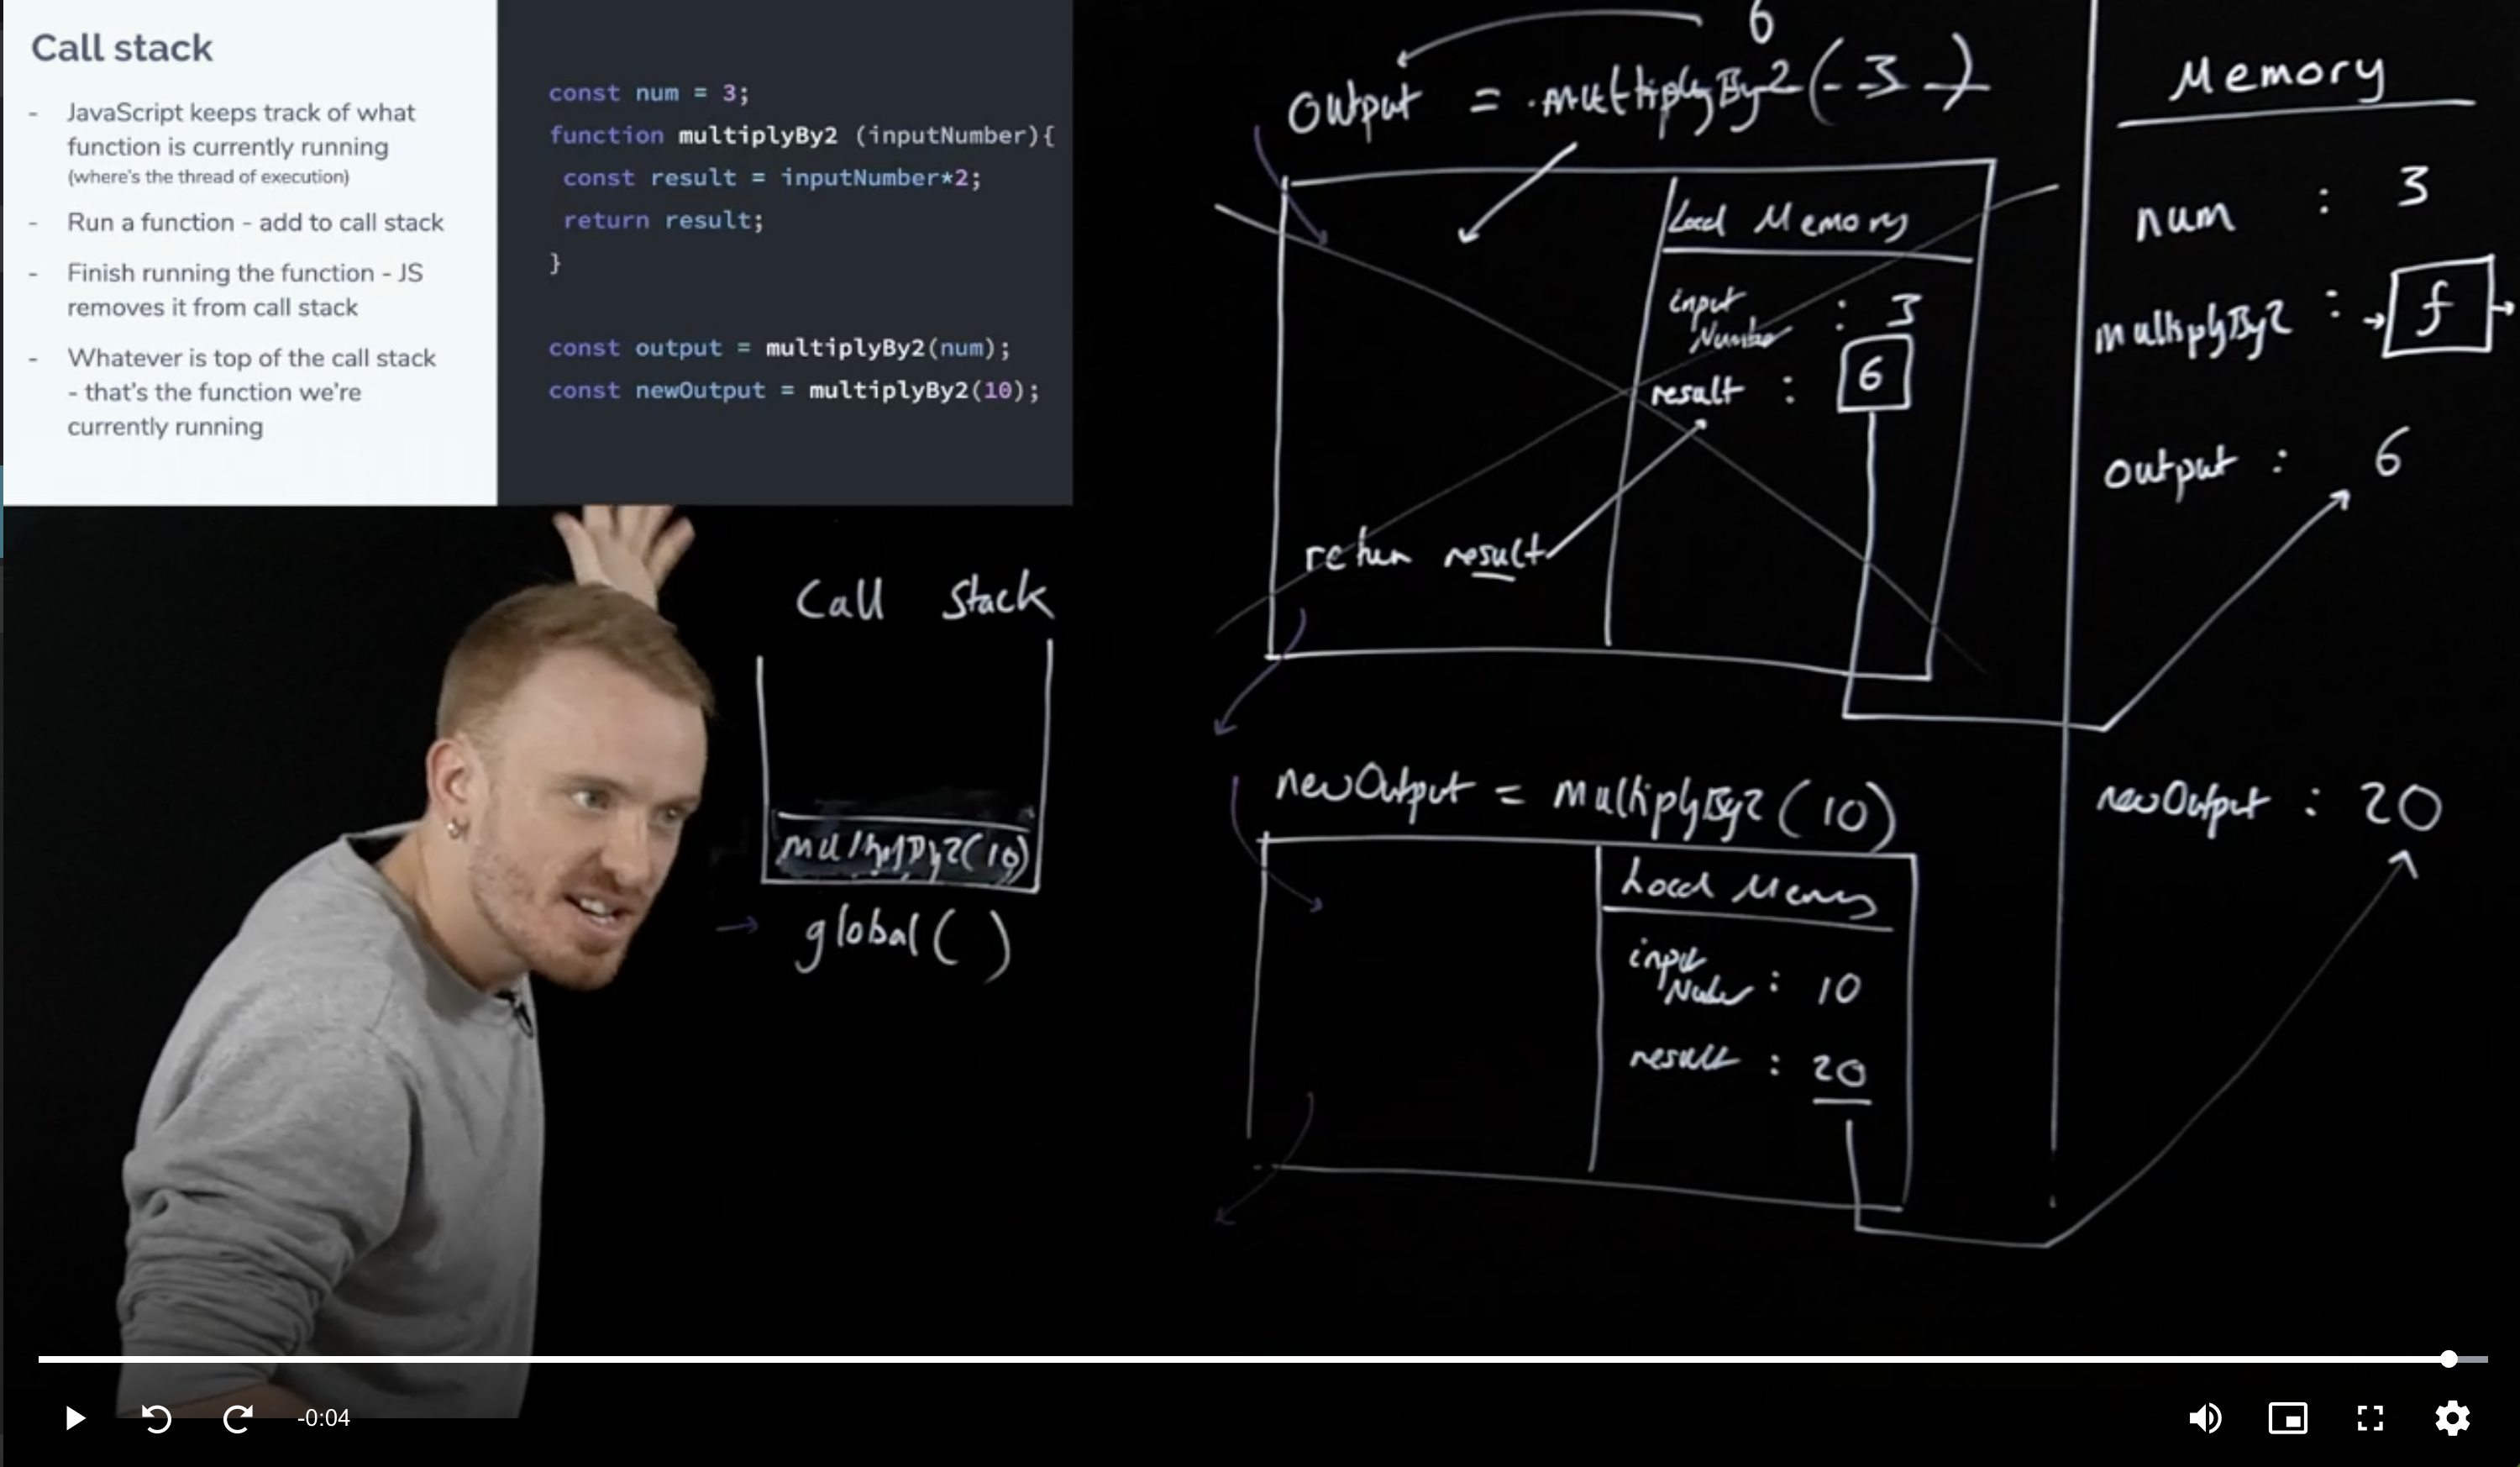 Call stack
- JavaScript keeps track of what
function is currently running
(where's the thread of execution)
- Run a function - add to call stack
- Finish running the function - JS
removes it from call stack
- Whatever is top of the call stack
- that's the function we're
currently running
const num = 3;
function multiplyBy2 (inputNumber){
const result = inputNumber*2;
return result;
}
const output = multiplyBy2(num);
const newOutput = multiplyBy2(10);
6
Output = multiplyBy2(-3-)
Local Memory
input
Number : 3
result : 6
return result
Memory
num : 3
multiplyBy2 : f
output : 6
Call Stack
multiplyBy2(10)
global()
newOutput = multiplyBy2(10)
Local Memory
input
Number : 10
result : 20
newOutput : 20
-0:04